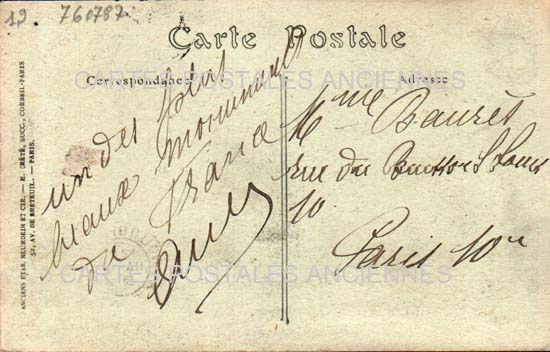 19 760787
Carte Postale
Correspondance
Adresse
CARTES POSTALES ANCIENNES
un des plus
beaux monument
de France
Mme Baurès
rue du Buisson St Louis
10
Paris 10e
CARTES POSTALES ANCIENNES
ANCIENS ETAB. NEURDEIN ET CIE. — E. CRÉTÉ, SUCC., CORBEIL-PARIS
52, AV. DE BRETEUIL. — PARIS.